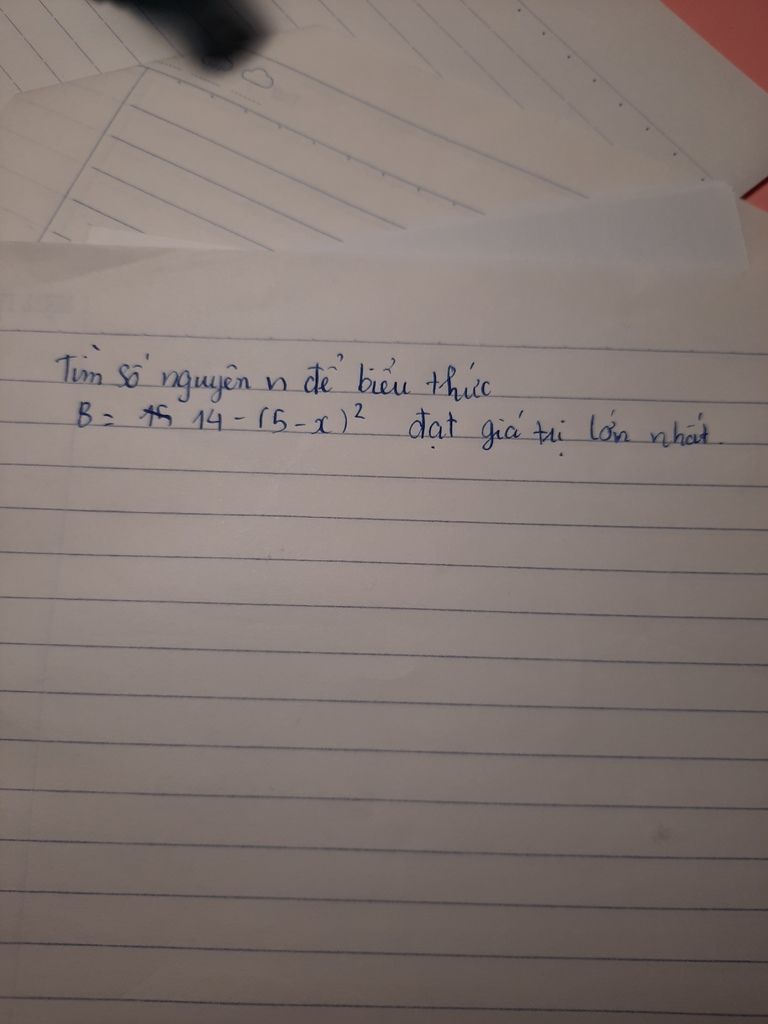 Tìm số nguyên n để biểu thức
B = 14 - (5 - x)² đạt giá trị lớn nhất.